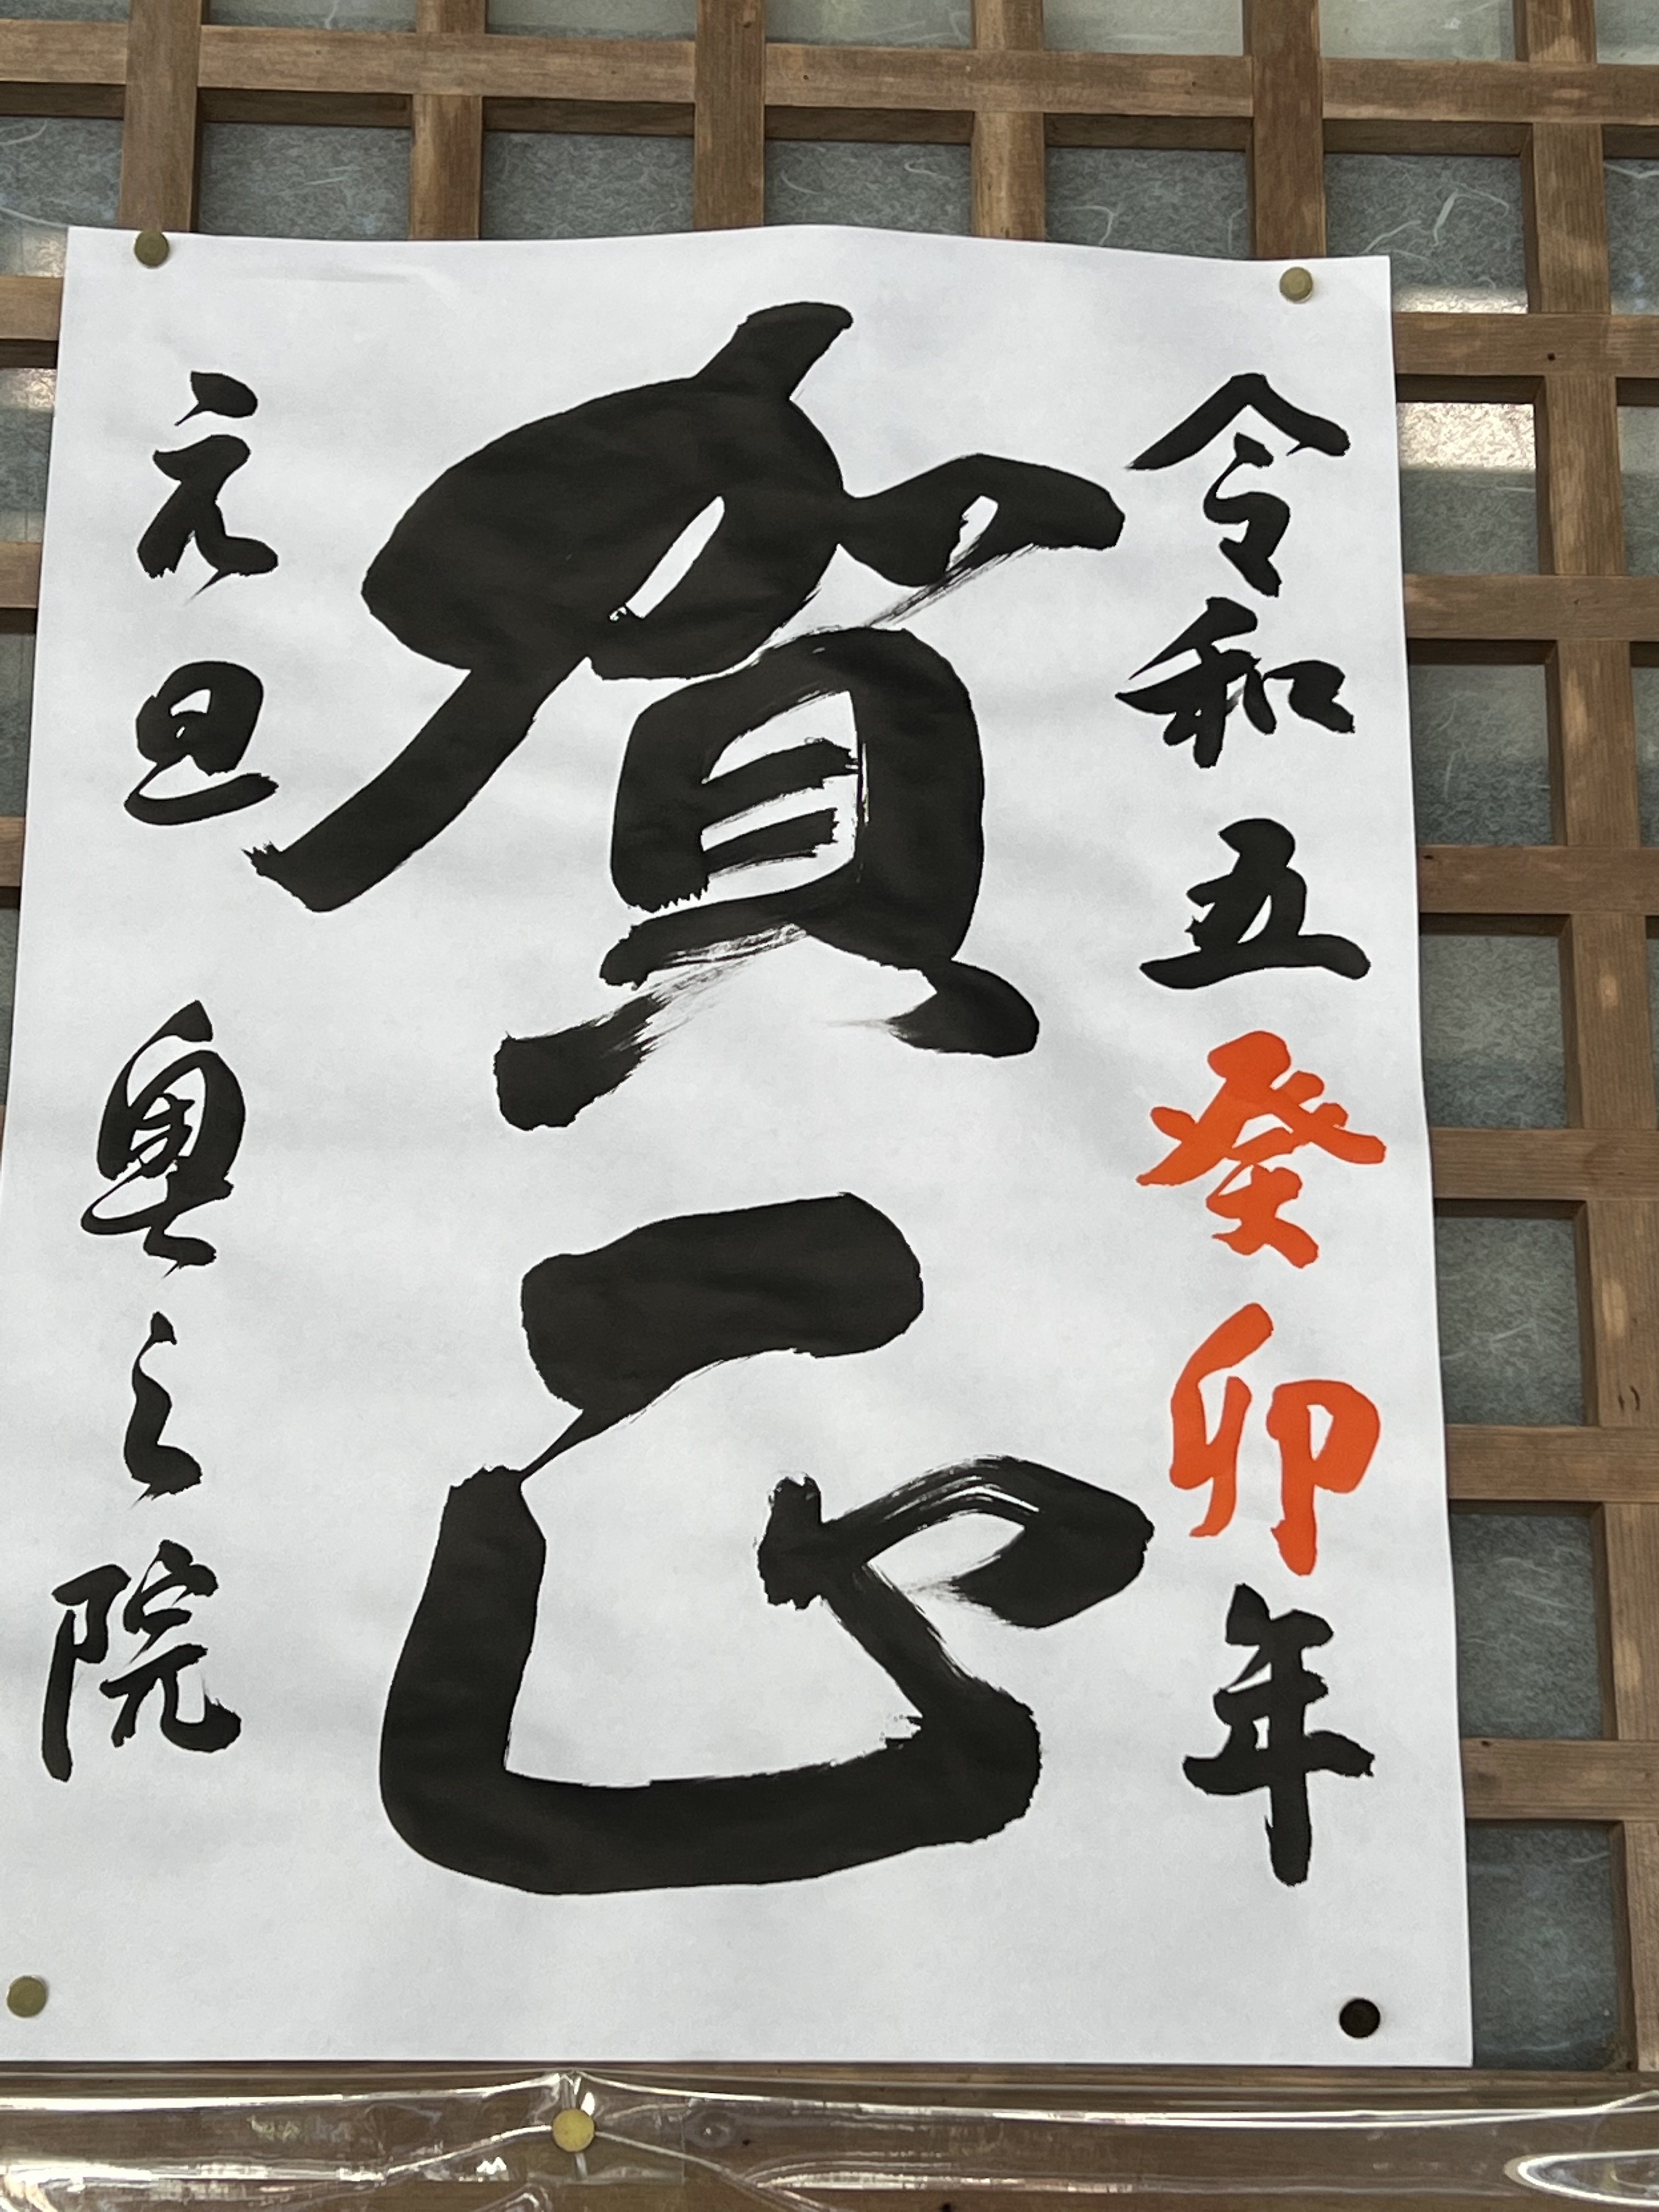 令和五癸卯年
賀正
元旦 奥之院